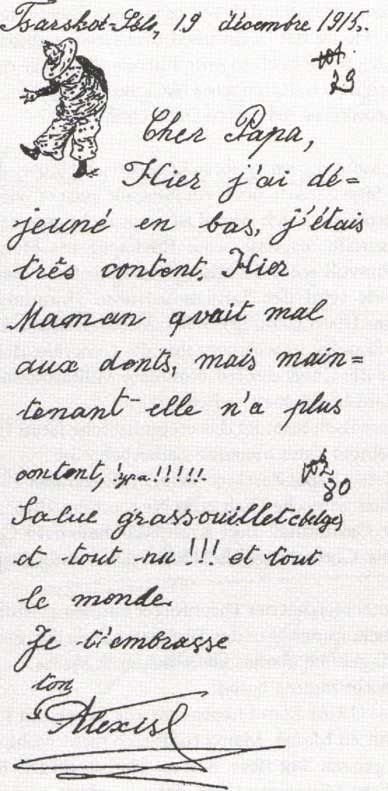 Tsarskoé-Sélo, 19 décembre 1915.
29
Cher Papa,
Hier j'ai dé=
jeuné en bas, j'étais
très content. Hier
Maman avait mal
aux dents, mais main=
tenant elle n'a plus
content, !!!!!!
30
Salue grassouillet (belge)
et tout nu !!! et tout
le monde.
Je t'embrasse
ton
Alexis